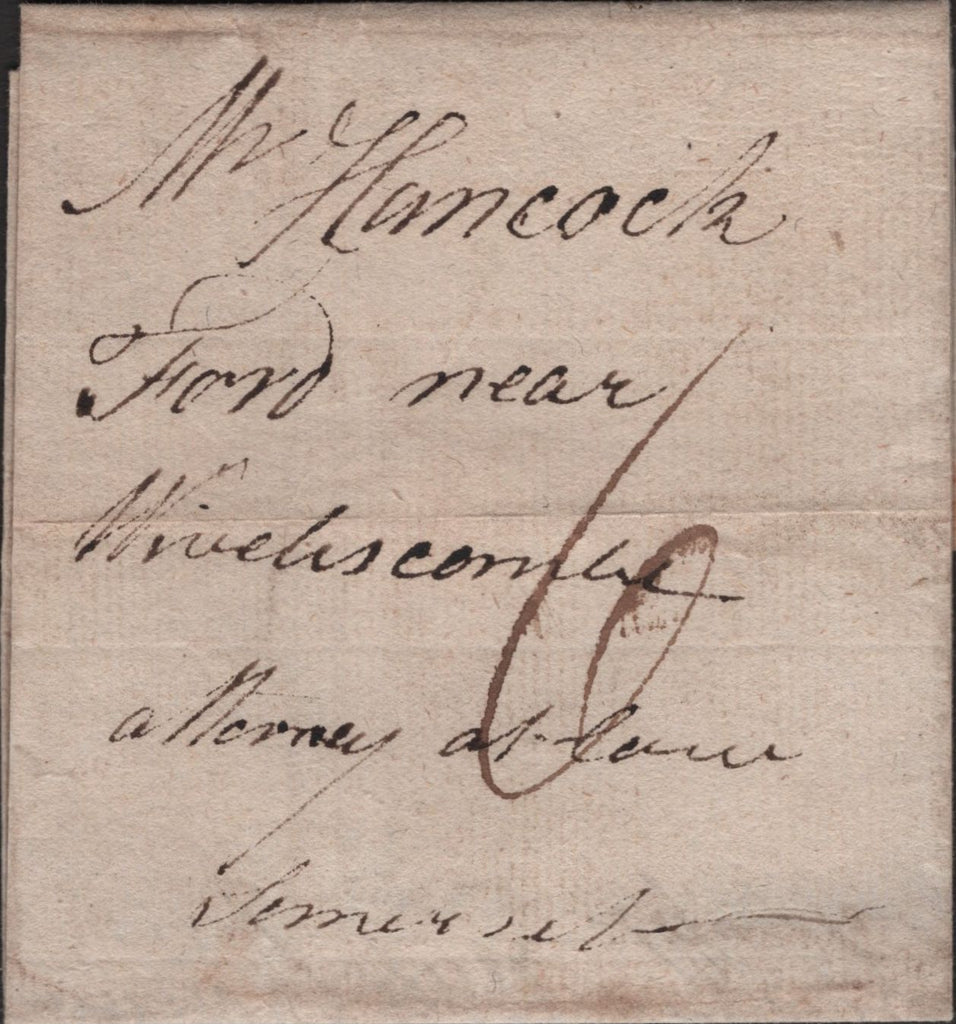 Mr Hancock
Ford near
Wiveliscombe
attorney at law
Somerset
6